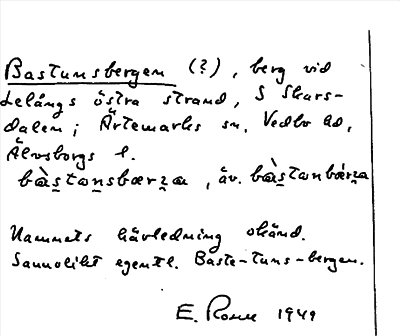 Bastunsbergen (?), berg vid
Lelångs östra strand, S Skars-
dalen; Ärtemarks sn, Vedbo hd,
Älvsborgs l.
bàstonsbærza, äv. bàstonbærza
Namnets härledning okänd.
Sannolikt egentl. Baste-tuns-bergen.
E. 1949